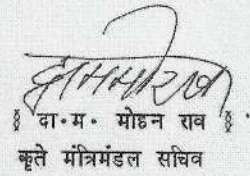 § दा॰म॰ मोहन राव §
कृते मंत्रिमंडल सचिव